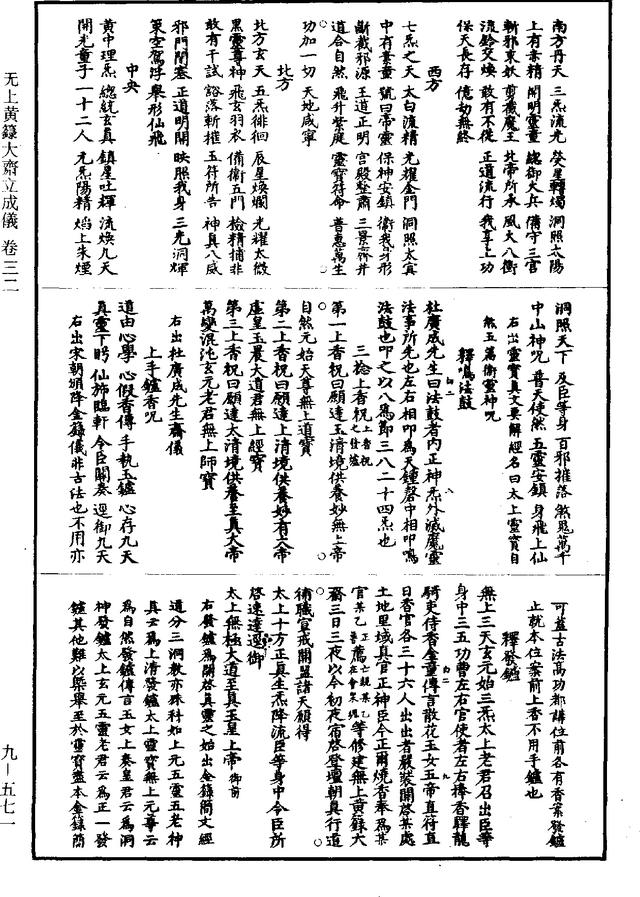 南方丹天　三炁流光　熒星轉燭　洞照太陽
上有赤精　開明靈童　總御火兵　備守三宮
斬邪束妖　剪截魔王　北帝所承　風火八衝
流鈴交煥　敢有不從　正道流行　我享上功
保天長存　億劫無終
西方
七炁之天　太白流精　光耀金門　洞照太冥
中有素童　號曰帝靈　保神安鎮　衛我身形
斷截邪源　王道正明　宮殿整肅　三景齊并
道合自然　飛升紫庭　靈寶符命　普惠萬生
功加一切　天地咸寧
北方
北方玄天　五炁徘徊　辰星煥爛　光耀太微
黑靈尊神　飛玄羽衣　備衛五門　檢精捕非
敢有干試　豁落斬摧　玉符所告　神真八威
邪門閉塞　正道明開　映照我身　三光洞輝
策空駕浮　舉形仙飛
中央
黃中理炁　總統玄真　鎮星吐輝　流煥九天
開光童子　一十二人　元炁陽精　焰上朱煙
洞照天下　及臣等身　百邪摧落　煞鬼萬千
中山神呪　普天使然　五靈安鎮　身飛上仙
右出靈寶真文要解經名曰太上靈寶自
然五篇衛靈神呪
釋鳴法鼓
杜廣成先生曰法鼓者内正神炁外滅魔靈
法事所先也左右相叩爲天鍾磬中相叩鳴
法鼓也叩之以八爲節三八二十四炁也
三捻上香祝上香祝之後發爐
第一上香祝曰願達玉清境供養妙無上帝
自然元始天尊無上道寶
第二上香祝曰願達上清境供養妙有大帝
虛皇玉晨大道君無上經寶
第三上香祝曰願達太清境供養至真大帝
萬變混沌玄元老君無上師寶
右出杜廣成先生齋儀
上手爐香呪
道由心學　心假香傳　手執玉爐　心存九天
真靈下盻　仙旆臨軒　令臣關奏　逕御九天
右出宋朝頒降金籙儀非古法也不用亦
可蓋古法高功都講位前各有香案發爐
止就本位案前上香不用手爐也
釋發爐
無上三天玄元始三炁太上老君召出臣等
身中三五功曹左右官使者左右捧香驛龍
騎吏侍香金童傳言散花玉女五帝直符直
日香官各三十六人出出者嚴裝關啓某處
土地里域真官正神臣今正爾燒香奉爲某
官某乙等修建無上黃籙大
齋三日三夜以今初夜宿啓登壇朝真行道
補職宣戒關盟諸天願得
太上十方正真生炁降流臣等身中令臣所
啓速達逕御
太上無極大道至真玉皇上帝御前
右發爐爲關啓真靈之始出金籙簡文經
道分三洞教亦殊科如上元五靈五老神
真云爲上清發爐太上靈寶無上元尊云
爲自然發爐傳言玉女上奏皇君云爲洞
神發爐太上玄元五靈老君云爲正一發
爐其他難以槩舉至於靈寶盡本金籙簡
无上黄籙大齋立成儀　卷三二
九－五七一